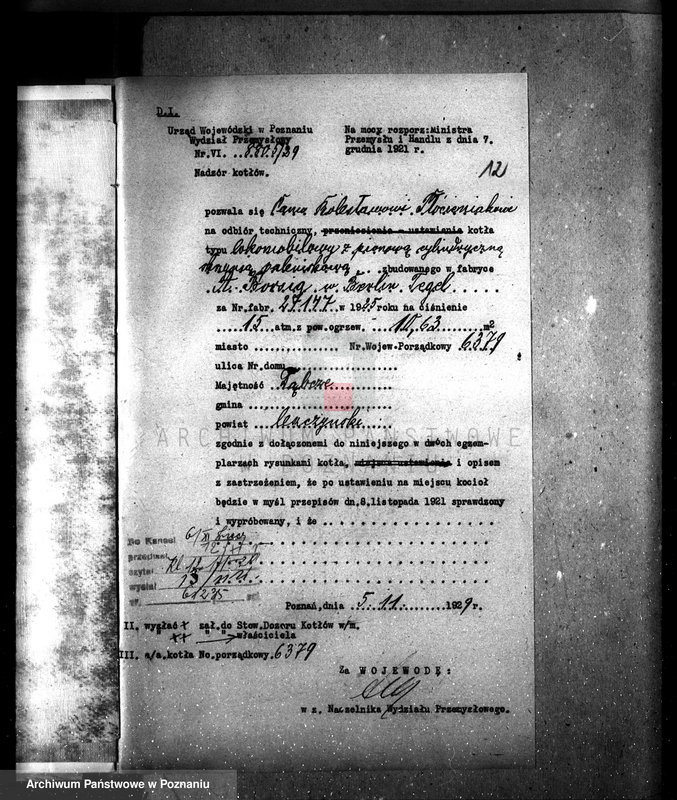 D.I.
Urząd Wojewódzki w Poznaniu
Wydział Przemysłowy
Nr.VI. /29
Nadzór kotłów.
Na mocy rozporz: Ministra
Przemysłu i Handlu z dnia 7.
grudnia 1921 r.
12
pozwala się Panu Bolesławowi
na odbiór techniczny, przeniesienie - ustawienie kotła
typu lokomobilowy z pionową cylindryczną
skrzynią paleniskową ... zbudowanego w fabryce
A. Borsig w Berlin Tegel .....
za Nr.fabr. 27.147 w 1935 roku na ciśnienie
.... 15 ..atm.z pow.ogrzew. ... 10,63 ........ m2
miasto ............... Nr.Wojew.Porządkowy 6379
ulica Nr.domu....................
Majętność Ząbcze..........
gmina .........................
powiat
ARCHIWUM PAŃSTWOWE
zgodnie z dołączonemi do niniejszego w dwóch egzem-
plarzach rysunkami kotła, miejsca ustawienia i opisem
z zastrzeżeniem, że po ustawieniu na miejscu kocioł
będzie w myśl przepisów dn.8.listopada 1921 sprawdzony
i wypróbowany, i że ........................
Do Kancel 6/XI
przepisał 12/XI
czytał
wysłał
Nr 61235
Poznań,dnia ..5.11........1929 r.
II. wysłać + zał.do Stow.Dozoru Kotłów w/m.
" ++ " " właściciela
III. a/a.kotła No.porządkowy.6379
Za WOJEWODĘ:
w z. Naczelnika Wydziału Przemysłowego.
Archiwum Państwowe w Poznaniu